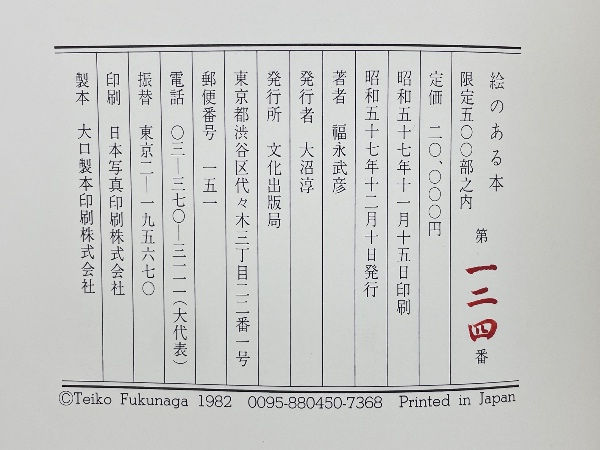 絵のある本
限定五〇〇部之内　第一二四番
定価　二〇、〇〇〇円
昭和五十七年十一月十五日印刷
昭和五十七年十二月十日発行
著者　福永武彦
発行者　大沼淳
発行所　文化出版局
東京都渋谷区代々木三丁目二二番一号
郵便番号　一五一
電話　〇三―三七〇―三一一一（大代表）
振替　東京二―一九五六七〇
印刷　日本写真印刷株式会社
製本　大口製本印刷株式会社
©Teiko Fukunaga 1982　0095-880450-7368　Printed in Japan